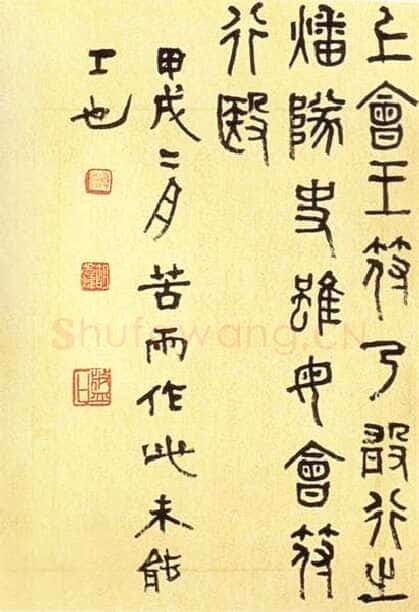 上會王符乃敢行之
燔隊事雖毋會符
行殹
甲戌二月苦雨作此未能
工也
Shufawang.CN